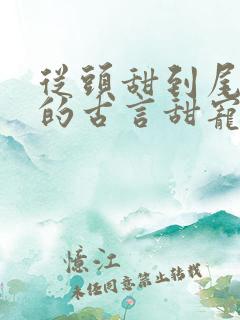 從頭甜到尾
的古言甜寵
憶江
未任同意禁止转载